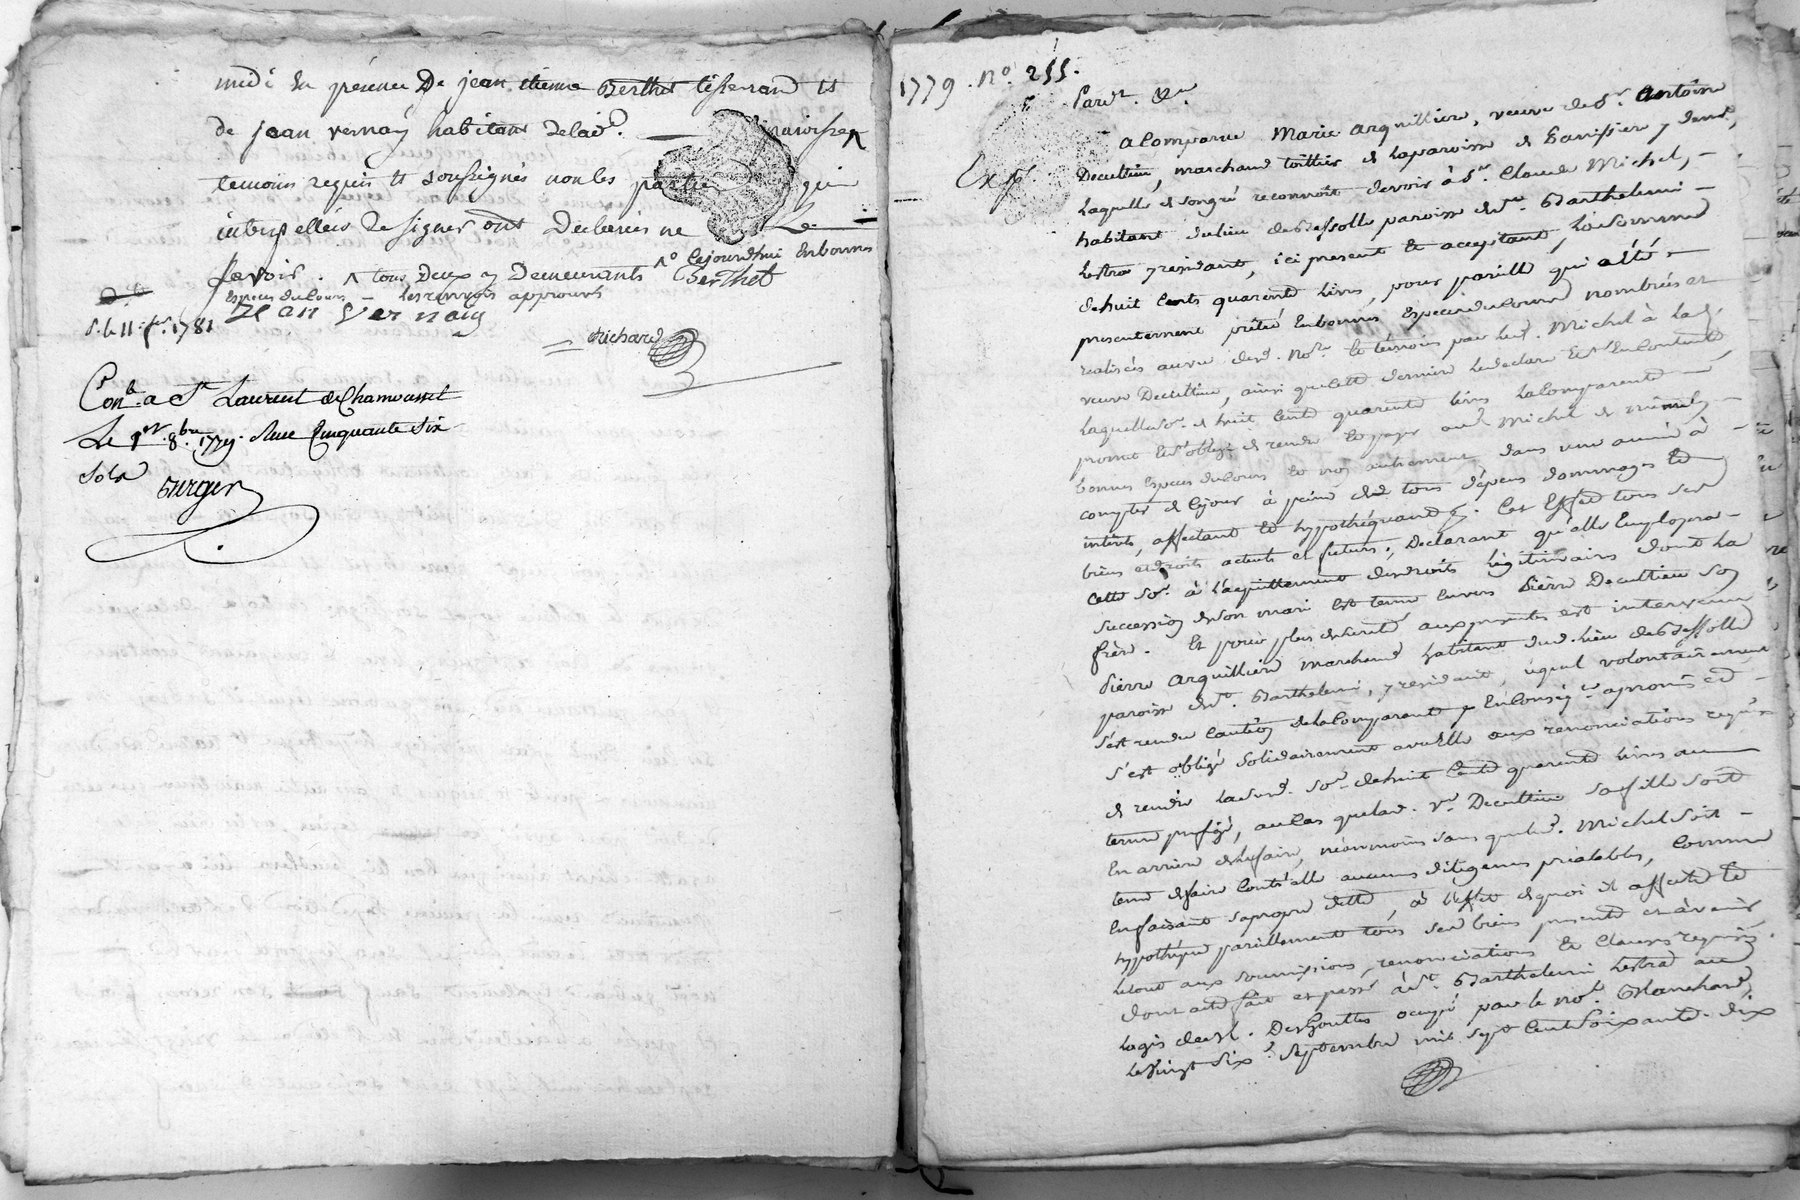 midi en présence De jean etienne Berthet tisserand et
de jean vernay habitant de lad. parroisse ^
temoins requis et soussignés non les parties qui
interpellées de signer ont Declarées ne Le
savoir. ^ tous Deux y Demeurants ^o cejourdhui en bonnes
especes du cours – les renvoys approuvés Berthet
Jean Vernay
S. le 11. 1781
Richard
Conlé. a St Laurent de Chamousset
Le 1er 8bre 1779. Reçu Cinquante Six
Sols
Burger
1779. No. 255.
Pardt. &a
Exp.
a Comparue Marie arquilliere, veuve de Sr. antoine
Decultieu, marchand toillier de la paroisse de Panissiere y demt.,
Laquelle de son gré reconnoit devoir à Sr. Claude Michel, –
habitant du lieu des Dessolle paroisse de St. Barthelemi –
Lestra y residant, ici present et acceptant, la somme
de huit Cents quarente livres, pour pareille qui a été –
presentement prêtée En bonnes Especes du Cours nombrées et
realisées au vu desd. nore. et témoins par led. Michel à lad.
veuve Decultieu, ainsi que cette derniere le declare Et s'En Contente
Laquelle so. de huit Cent quarente livres la Comparente
promet Et s'oblige de rendre Et payer aud. Michel et même En
bonnes Especes du Cours et non autrement dans une année à
compter de Ce jour à peine de tous dépens dommages Et
intérêts, affectant Et hypothéquant à Cet Effet tous ses
biens et droits actuels et futurs; Declarant qu'elle Employera –
Cette so. à l'acquittement des droits légitimaires dont la
succession de son mari Est tenue Envers Pierre Decultieu son
frère. Et pour plus de sureté aux presentes est intervenu
Pierre arquilliere marchand habitant dud. lieu des Dessolle
paroisse de St. Barthelemi, y residant, lequel volontairement
s'est rendu Caution de la Comparante, En Conséqce. a promis et –
s'est obligé solidairement avec Elle aux renonciations requises
de rendre la susd. so. de huit Cent quarente livres au
terme prefigé, au Cas que lad. ve. Decultieu sa fille soit
En arriere de le faire, néanmoins sans que led. Michel soit –
tenu de faire Contr'elle aucunes diligences préalables, Comme
En faisant sa propre dette, à l'effet de quoi il affecte Et
hypothéque pareillement tous ses biens presents et à venir
le tout aux soumissions, renonciations Et Clauses requises.
dont acte fait et passé à St. Barthelemi Lestra au
logis de Desgouttes occupé par le no. Blanchard
Le Vingt Six Septembre mil sept Cent Soixante-dix